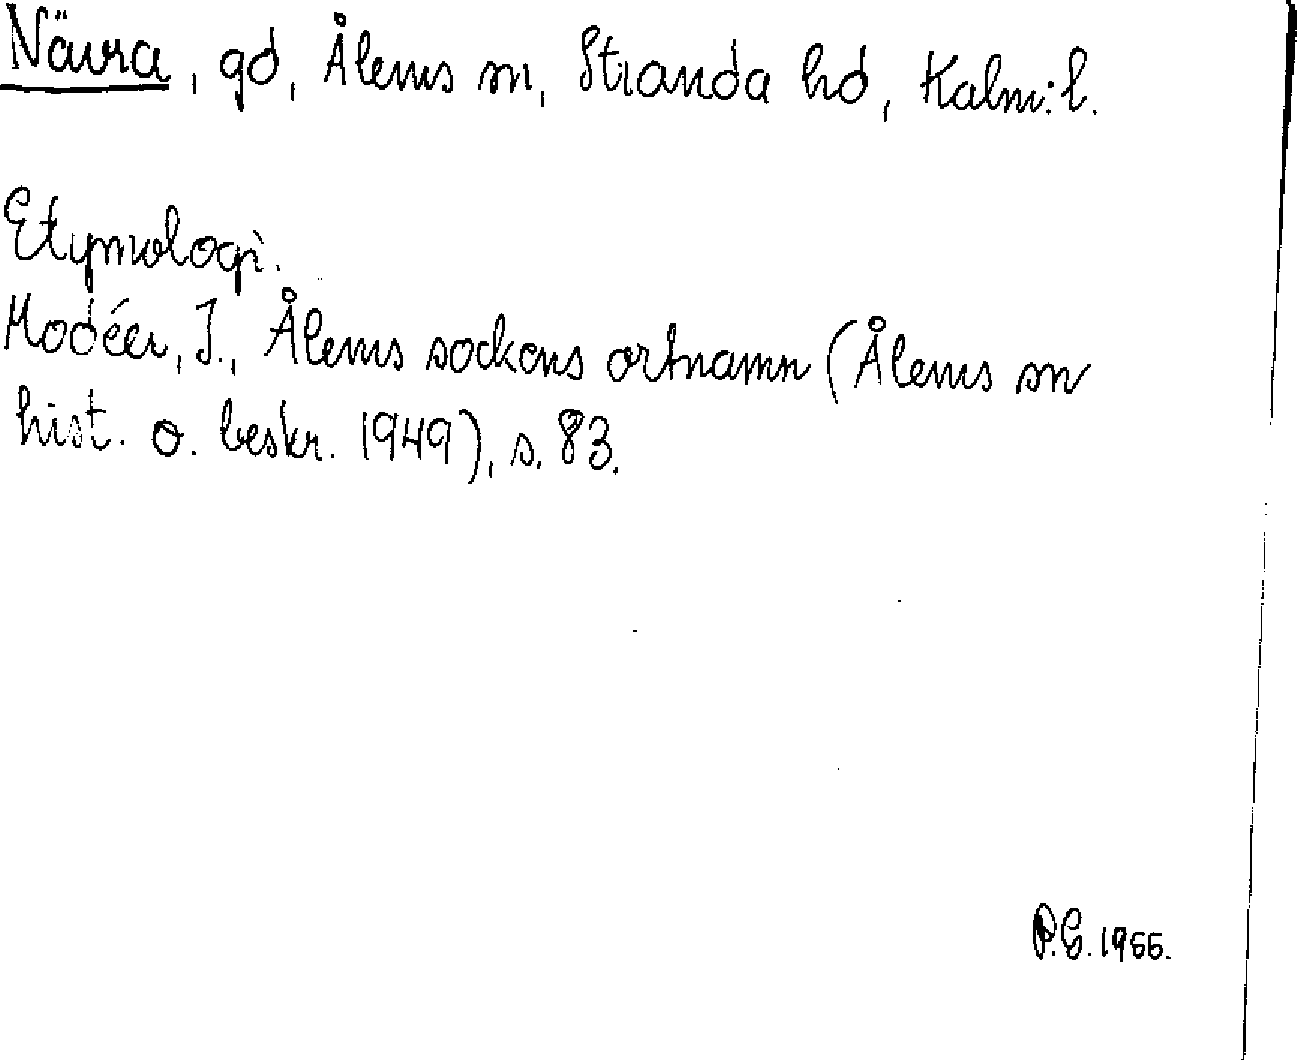 Nävra, gd, Ålems sn, Stranda hd, Kalm:l.
Etymologi.
Modéer, I., Ålems sockens ortnamn (Ålems sn
hist. o. beskr. 1949), s. 83.
P.E. 1955.